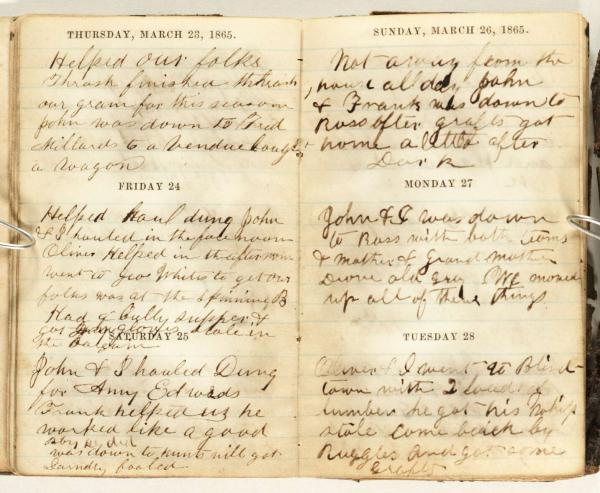 THURSDAY, MARCH 23, 1865.
Helped our folks
Thrash finished thrash
our grain for this season
John was down to Fred
Millards to a vendue bought
a wagon
FRIDAY 24
Helped haul dung John
& I hauled in the fore noon
Oliver Helped in the afternoon
went to Geo Whites to get our
folks was at the spinning B
Had a bully supper &
got gloves stole in
the
SATURDAY 25
John & I hauled Dung
for Amy Edwards
Frank helped us he
worked like a good
boy he did
was down to hunts will got
fooled
SUNDAY, MARCH 26, 1865.
Not away from the
house all day John
& Frank was down to
Ross after grafts got
home a little after
Dark
MONDAY 27
John & I was down
to Ross with both teams
& mother & Grand mother
Drove old gray We moved
up all of there things.
TUESDAY 28
Oliver & I went to Blind
town with 2 loads of
lumber he got his whip
stole come back by
Ruggles and got some
grafts